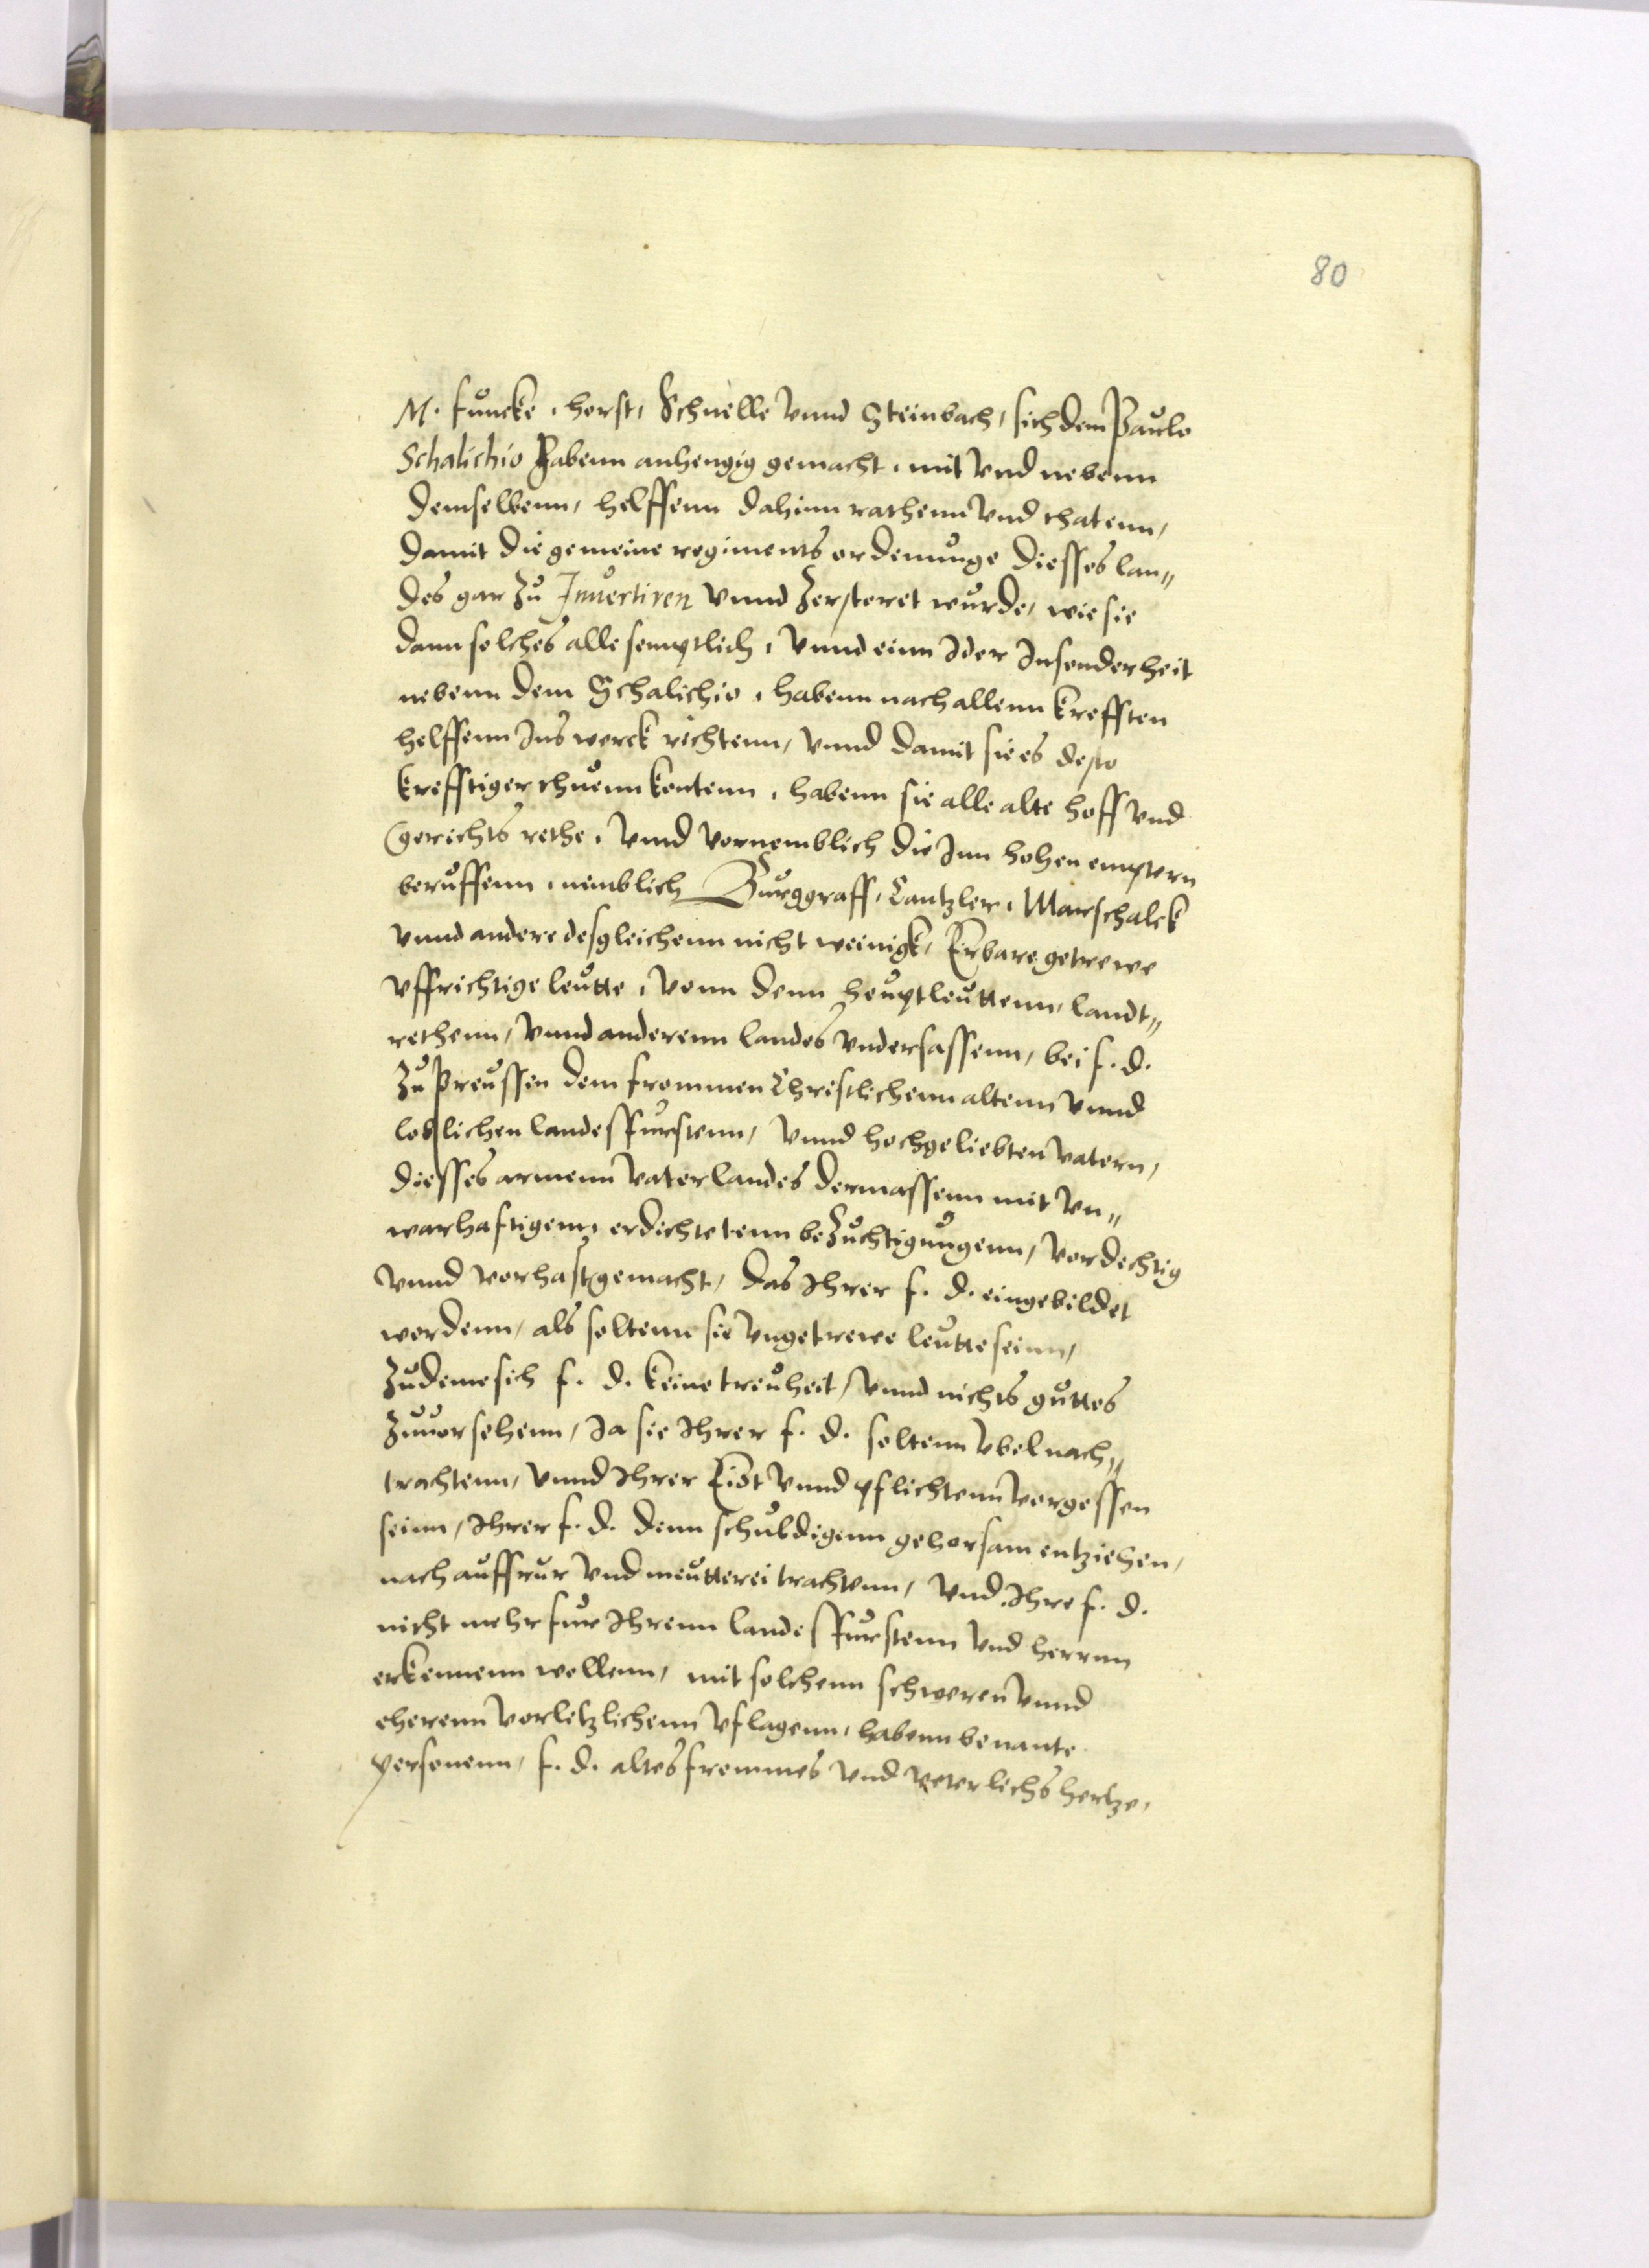 80
M. Funcke, Horst, Schnelle vnnd Steinbach, sich dem Paulo
Schalichio habenn anhengig gemacht, mit vnd nebenn
demselbenn, helffenn dahinn rathenn vnd thatenn,
damit die gemeine regiments ordenunge diesses lan„
des gar zu Inuertiren vnnd zersteret wurde, wie sie
dann solches alle semptlich, vnnd einn Ider Insonderheit
nebenn dem Schalichio, habenn nach allenn krefften
helffenn Ins werck richtenn, vnnd damit sie es desto
krefftiger thuenn kontenn, habenn sie alle alte hoff vnd
gerichts rethe, vnnd vornemblich die Inn hohen emptern
beruffenn, nemblich Burggraff, Cantzler, Marschalck
vnnd andere desgleichenn nicht weinigk, Erbare getrewe
vffrichtige leutte, vonn denn heuptleuttenn, landt„
rethenn, vnnd anderenn landes vndersassenn, bei f. d.
zu Preussen dem frommen Christlichenn altenn vnnd
loblichen landesfurstenn, vnnd hochgeliebten vatern,
diesses armenn vaterlandes dermassenn mit vn„
warhafftigenn, erdichtetenn bezuchtigungenn, vordechtig
vnnd vorhast gemacht, das Ihrer f. d. eingebildet
wordenn, als soltenn sie vngetrewe leutte seinn,
zu deme sich f. d. keine treuheit, vnnd nichts guttes
zuuorsehenn, Ja sie Ihrer f. d. soltenn vbel nach„
trachtenn, vnnd Ihrer Eidt vnnd pflichtenn vorgessen
seinn, Ihrer f. d. denn schuldigenn gehorsam entziehen,
nach auffrur vnd meutterei trachtenn, vnd Ihre f. d.
nicht mehr fur Ihrenn landesfurstenn vnd herrnn
erkennenn wollenn, mit solchenn schweren vnnd
eherenn vorletzlichenn vflagenn, habenn benante
personenn, f. d. altes frommes vnd veterlichs hertze,